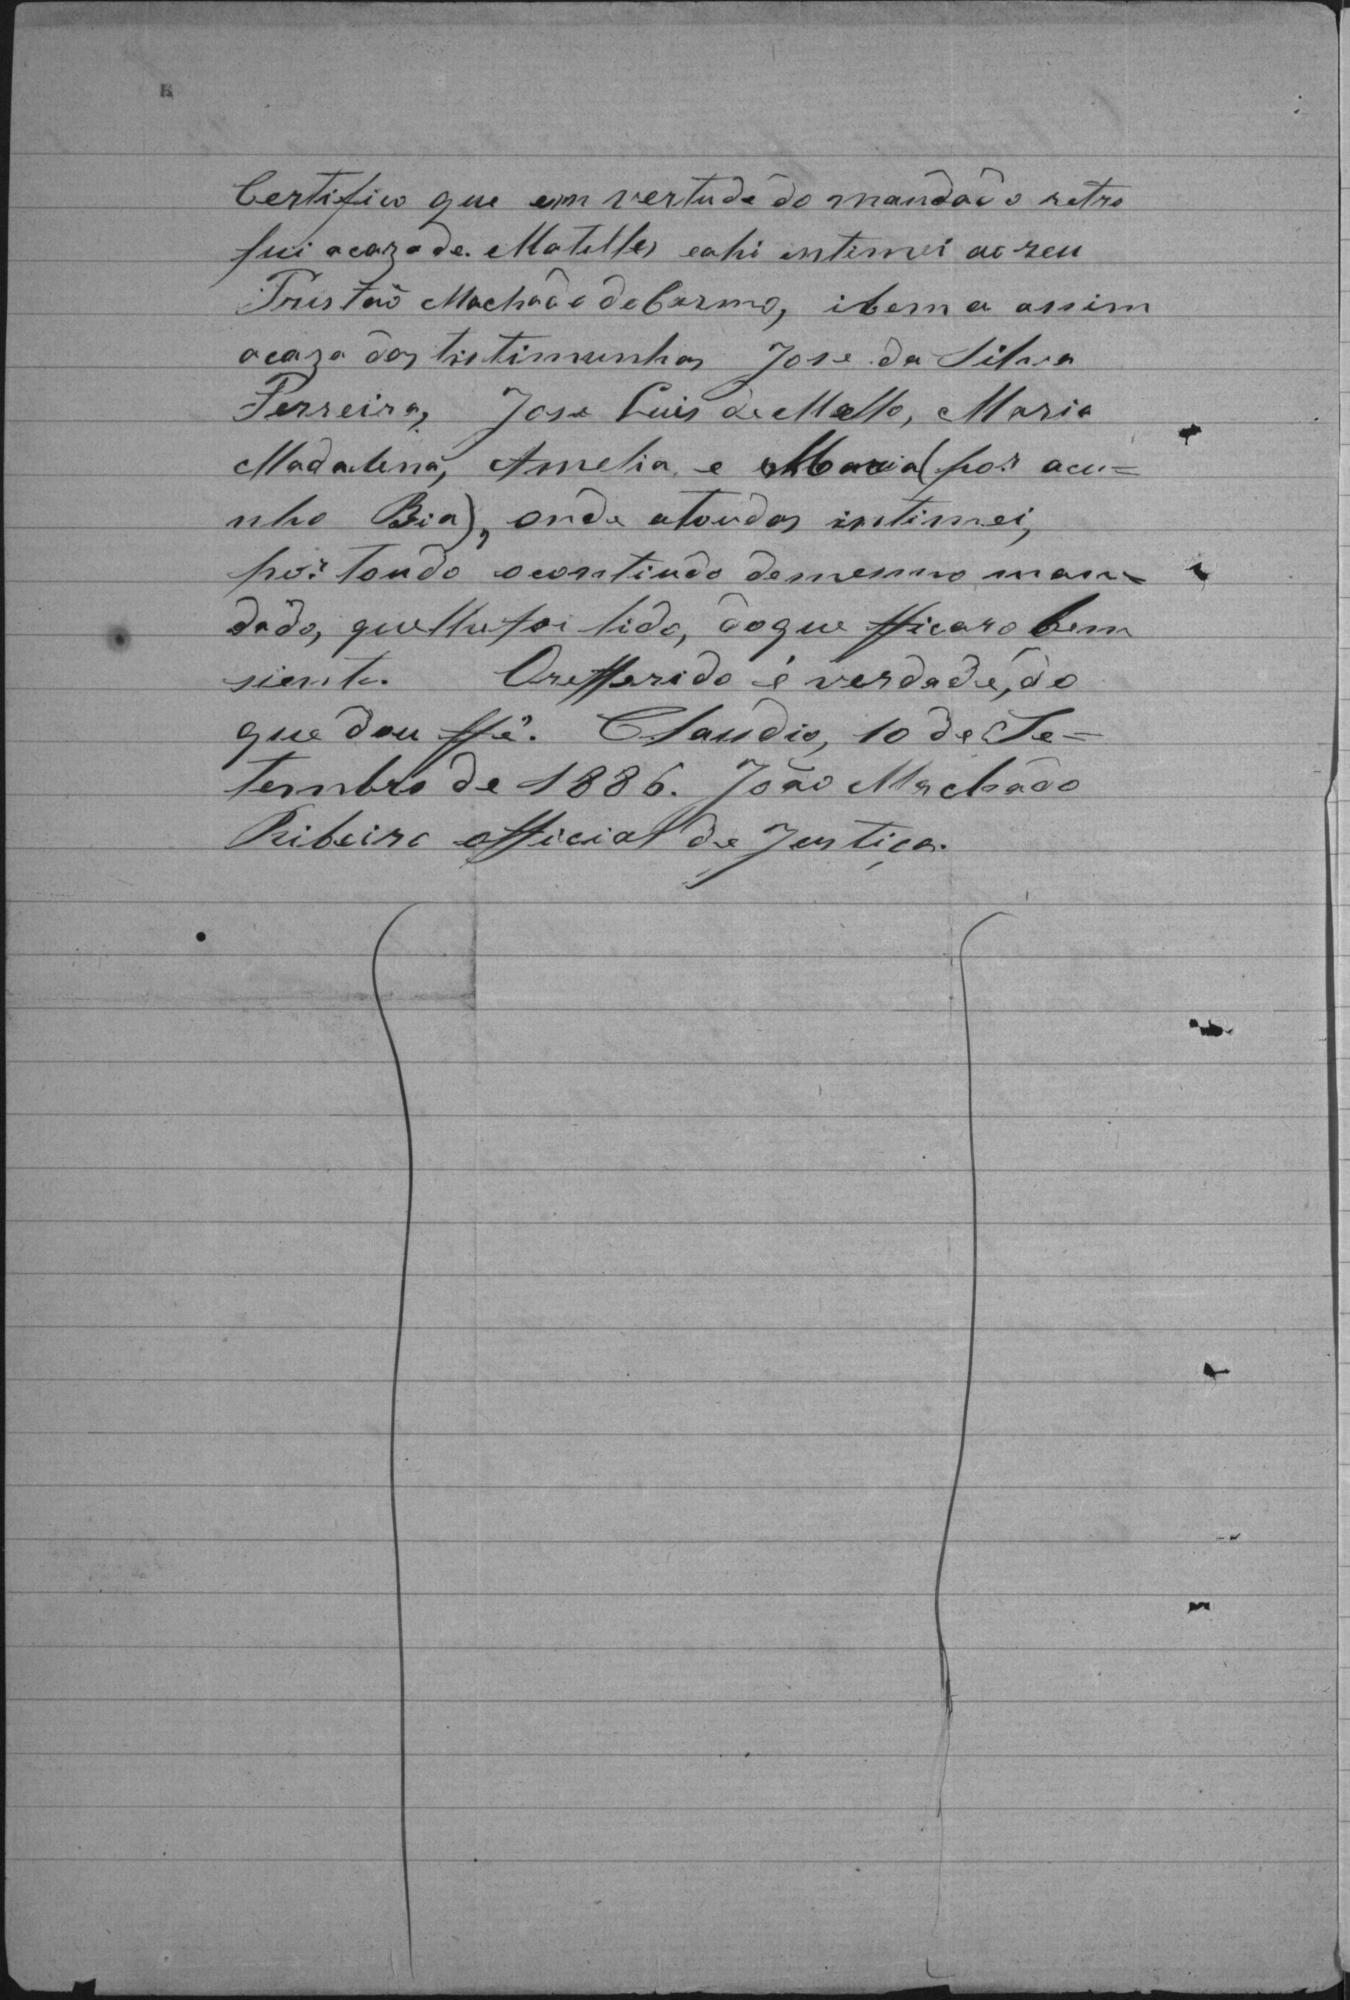 Certifico que em vertude do mandado retro
fui acaza de Matelles eahi entimei ao reu
Tristaõ Machado do Carmo, ibem a assim
acaza das tistimunhas Jose da Silva
Ferreira, Jose Luis de Mello, Maria
Madalena, Amelia e Maria (por acu=
nho Bia), onde atoudas intimei,
por toudo ocontiudo domesmo man=
dado, quelhe foi lido, doque fficaro bem
siente. Orefferido é verdade, do
que dou ffé. Claudio, 10 de Se=
tembro de 1886. João Machado
Ribeiro official de Justiça.